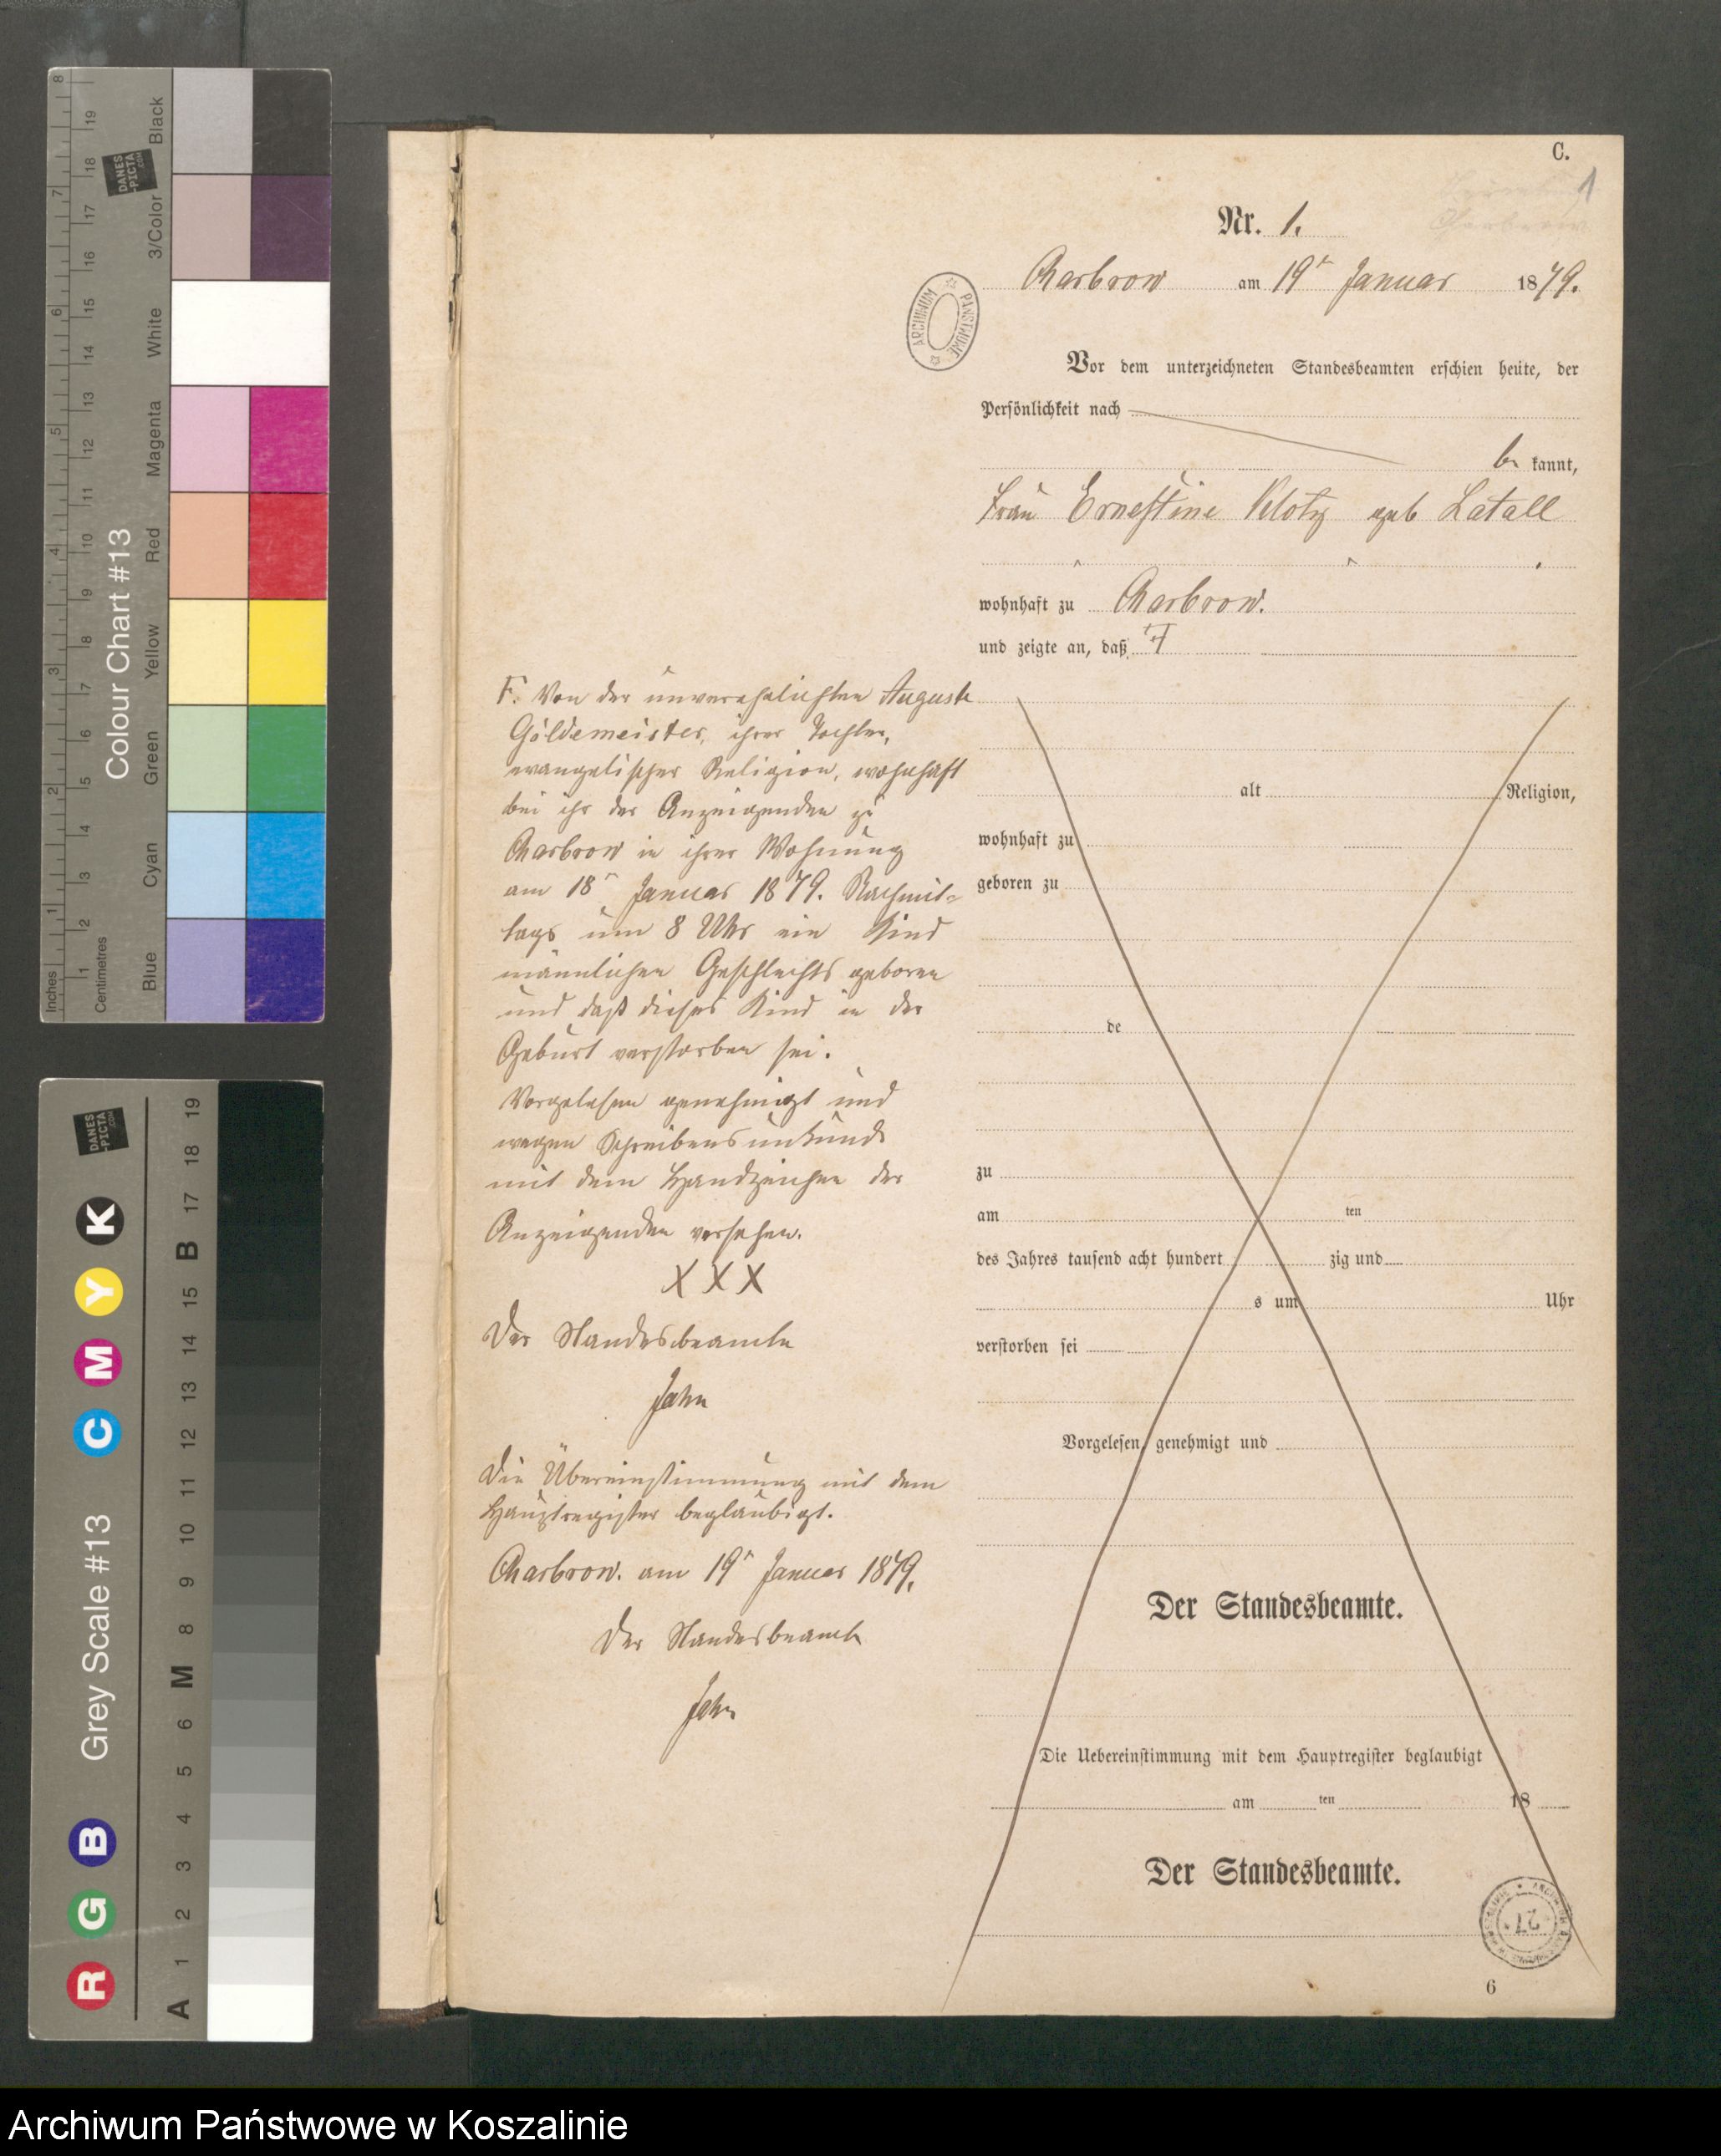 C.
1
Nr. 1.
Charbrow am 19t Januar 1879.
ARCHIWUM PAŃSTWOWE
Vor dem unterzeichneten Standesbeamten erschien heute, der
Persönlichkeit nach
be kannt,
Frau Ernestine Klotz geb Latall
wohnhaft zu Charbrow.
und zeigte an, daß F
F. Von der unverehelichten Auguste
Güldemeister, ihrer Tochter,
evangelischer Religion, wohnhaft
bei ihr der Anzeigenden zu
Charbrow in ihrer Wohnung
am 18t Januar 1879. Nachmit-
tags um 8 Uhr ein Kind
männlichen Geschlechts geboren
und daß dieses Kind in der
Geburt verstorben sei.
Vorgelesen genehmigt und
wegen Schreibensunkunde
mit dem Handzeichen der
Anzeigenden versehen.
X X X
Der Standesbeamte
Jahn
Die Übereinstimmung mit dem
Hauptregister beglaubigt.
Charbrow. am 19t Januar 1879.
Der Standesbeamte
Jahn
alt Religion,
wohnhaft zu
geboren zu
de
zu
am ten
des Jahres tausend acht hundert zig und
s um Uhr
verstorben sei
Vorgelesen, genehmigt und
Der Standesbeamte.
Die Uebereinstimmung mit dem Hauptregister beglaubigt
am ten 18
Der Standesbeamte.
27
6
Inches
Centimetres
1 2 3 4 5 6 7 8
1 2 3 4 5 6 7 8 9 10 11 12 13 14 15 16 17 18 19
Colour Chart #13
Blue Cyan Green Yellow Red Magenta White 3/Color Black
DANES
-PICTA
.COM
Grey Scale #13
R G B C M Y K
DANES
-PICTA
.COM
A 1 2 3 4 5 6 M 8 9 10 11 12 13 14 15 B 17 18 19
Archiwum Państwowe w Koszalinie